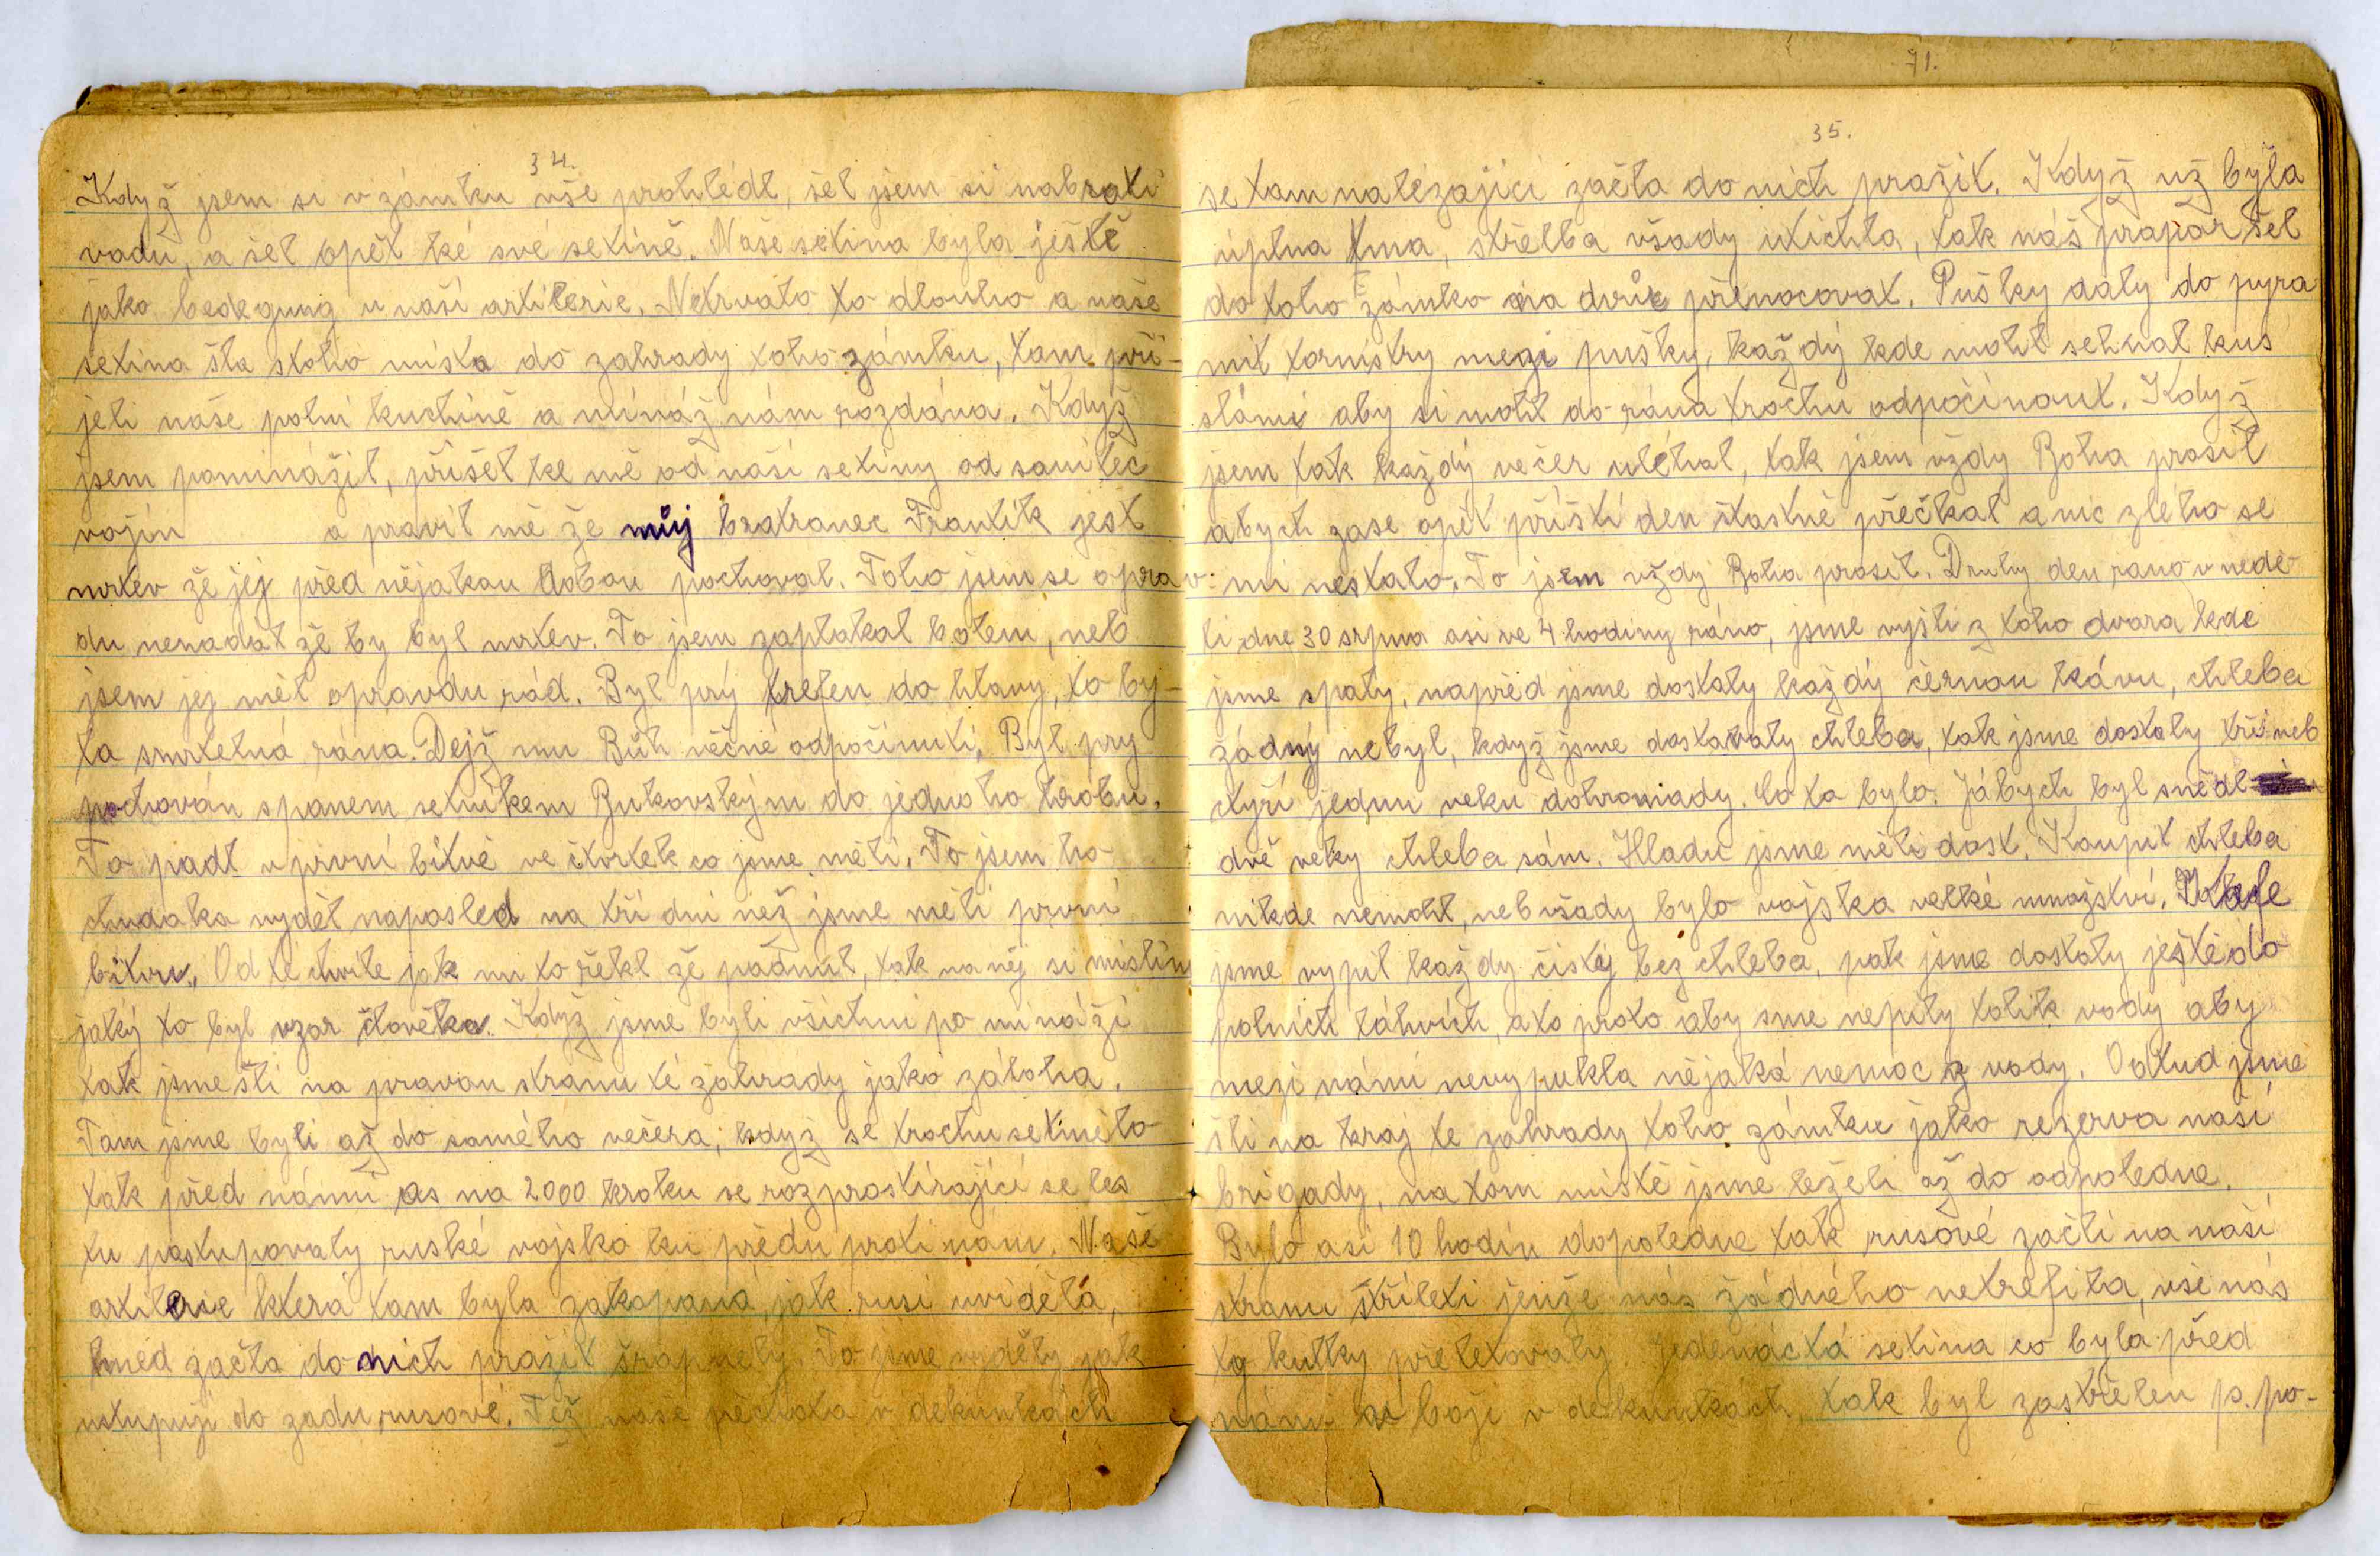 34.
Když jsem si v zámku vše prohlédl, šel jsem si nabrati
vodu, a šel opět ké své setině. Naše setina byla ještě
jako bedegung u naší artilerie. Netrvalo to dlouho a naše
setina šla stoho místa do zahrady toho zámku, tam při-
jeli naše polní kuchině a mináž nám rozdána. Když
jsem pominážil, přišel ke mě od naší setiny od sanitec
vojín a pravil mě že můj bratranec Frantík jest
mrtev že jej před nějakou dobou pochoval. Toho jsem se oprav-
du nenadal že by byl mrtev. To jsem zaplakal bolem, neb
jsem jej měl opravdu rád. Byl prý trefen do hlavy, to by-
la smrtelná rána. Dejž mu Bůh věčné odpočinutí, Byl prý
pochován spanem setníkem Bukovským do jednoho hrobu.
To padl v první bitvě ve čtvrtek co jsme měli. To jsem ho
chudáka vyděl naposled na tří dni než jsme měli první
bitvu. Od té chvíle jak mi to řekl že padnul, tak na něj si mislím
jaký to byl vzor človéka. Když jsme byli všichni po mináži
tak jsme šli na pravou stranu té zahrady jako záloha.
Tam jsme byli až do samého večera, když se trochu setmělo
tak před námi as na 2000 kroku se rozprostirající se les
tu postupovaly ruské vojsko ku předu proti nám. Naše
artilerie která tam byla zakopaná, jak rusi uviděla,
hned začla do nich pražit šrapnely. To jsme viděly jak
ustupují do zadu rusové. Též naše pěchota v dekunkách
35.
se tam nalézající začla do nich pražit. Když už byla
úplna tma, střelba všady utichla, tak náš prapor šel
do toho zámko na dvůr přenocovat. Pušky daly do pyra
mit tornistry mezi pušky, každý kde mohl sehnal kus
slámi aby si mohl do rána trochu odpočinout. Když
jsem tak každý večer uléhal, tak jsem vždy Boha prosil
abych zase opět příští den štastně přečkal a nic zlého se
mi nestalo. To jsem vždy Boha prosil. Druhy den rano v nedě-
li dne 30 srpna asi ve 4 hodiny ráno, jsme vyšli z toho dvora kde
jsme spaly, napřed jsme dostaly každý černou kávu, chleba
žádný nebyl, když jsme dostávaly chleba, tak jsme dostaly tři neb
čtyři jednu veku dohromady. Co to bylo. Jábych byl snědl
dvě veky chleba sám. Hladu jsme měli dost. Koupit chleba
nikde nemohl, neb všady bylo vojska velké množství. Kafe
jsme vypil každy čistéj bez chleba, pak jsme dostaly ještě do
polnich láhvích, a to proto aby sme nepily tolik vody aby
mezi námi nevypukla nějaká nemoc z vody. Odtud jsme
šli na kraj té zahrady toho zámku jako rezerva naší
brigady, na tom místě jsme leželi až do odpoledne.
Bylo asi 10 hodin dopoledne tak rusové začli na naší
stranu stříleti jenže nás žádného netrefila, vše nás
ty kulky přeletovaly. Jedenáctá setina co byla před
námi v boji v dekunkách, tak byl zastřelen p. po-
71.